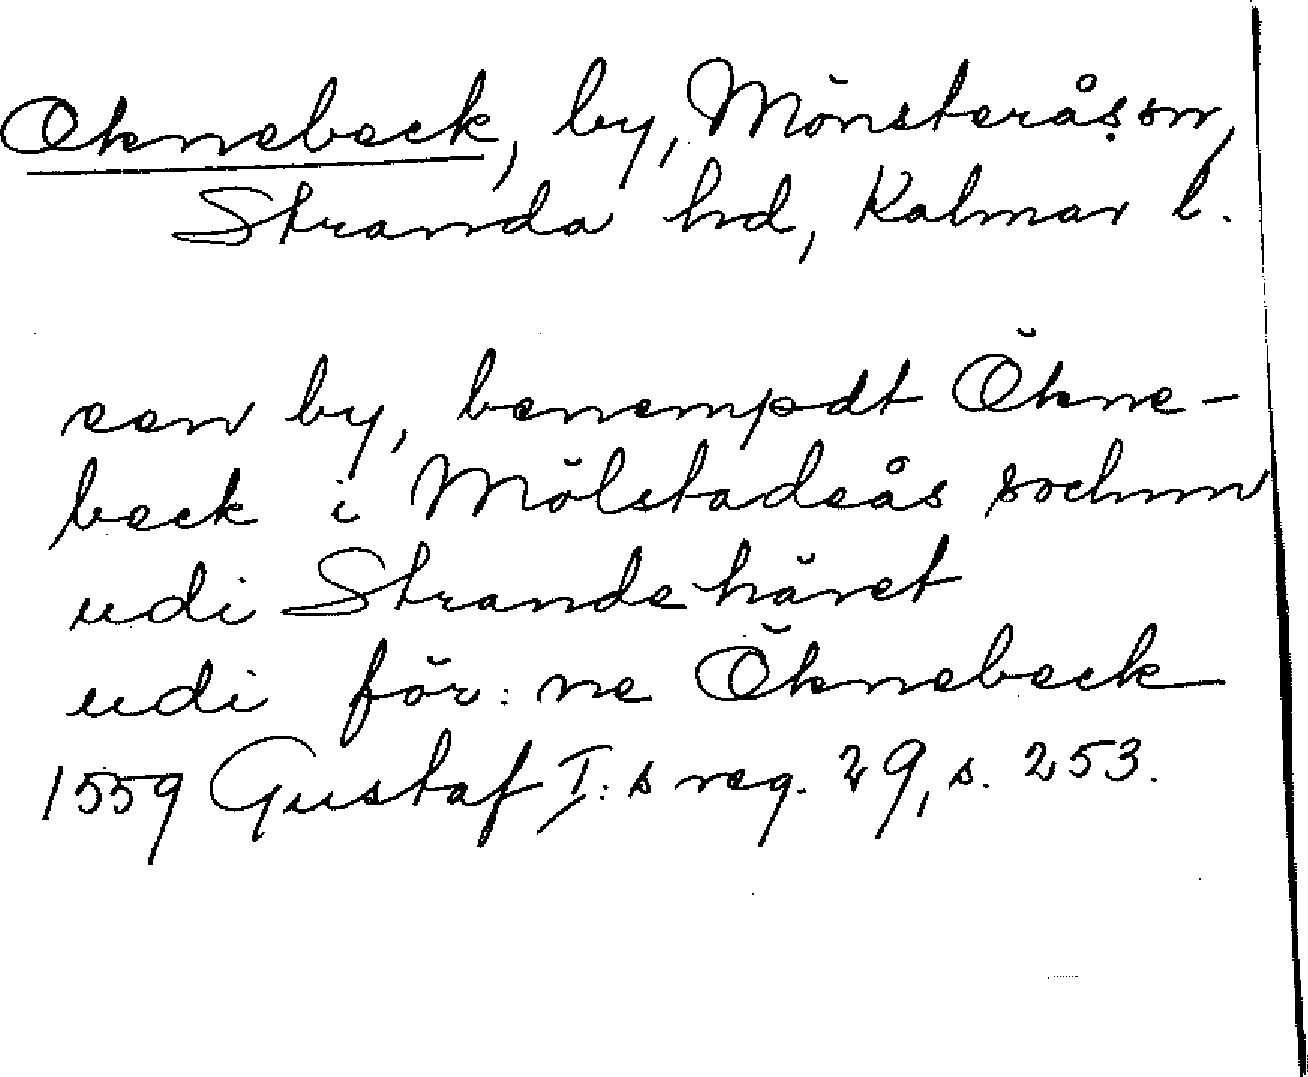 Oknebeck, by, Mönsterås sn,
Stranda hd, Kalmar l.
een by, benempdt Ökne-
beck i Mölstadeås sochnn
udi Strandehäret
udi för:ne Öknebeck
1559 Gustaf I:s reg. 29, s. 253.